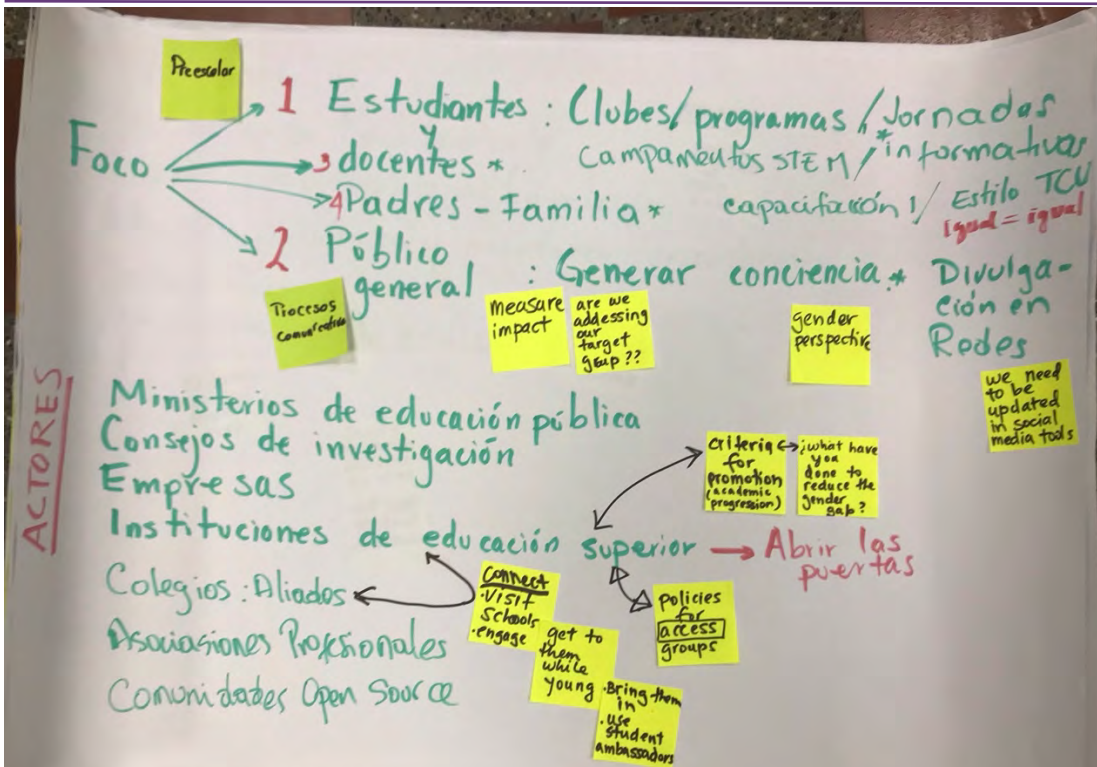 Preescolar
Foco
1 Estudiantes : Clubes/programas/Jornadas
y
* informativas
3 docentes *. Campamentos STEM /
4 Padres - Familia * capacitación 1/ Estilo TCU
igual = igual
2 Público
general : Generar conciencia * Divulga-
ción en
Redes
Procesos
measure
impact
are we
addessing
our
target
group??
gender
perspective
we need
to be
updated
in social
media tools
ACTORES
Ministerios de educación pública
Consejos de investigación
Empresas
Instituciones de educación superior → Abrir las
puertas
Colegios : Aliados
Asociasiones Profesionales
Comunidades Open Source
criteria
for
promotion
(academic
progression)
¿what have
you
done to
reduce the
gender
gap?
Connect
·VISIT
Schools
·engage
get to
them
while
young
·Bring them
in
·use
student
ambassadors
policies
for
access
groups